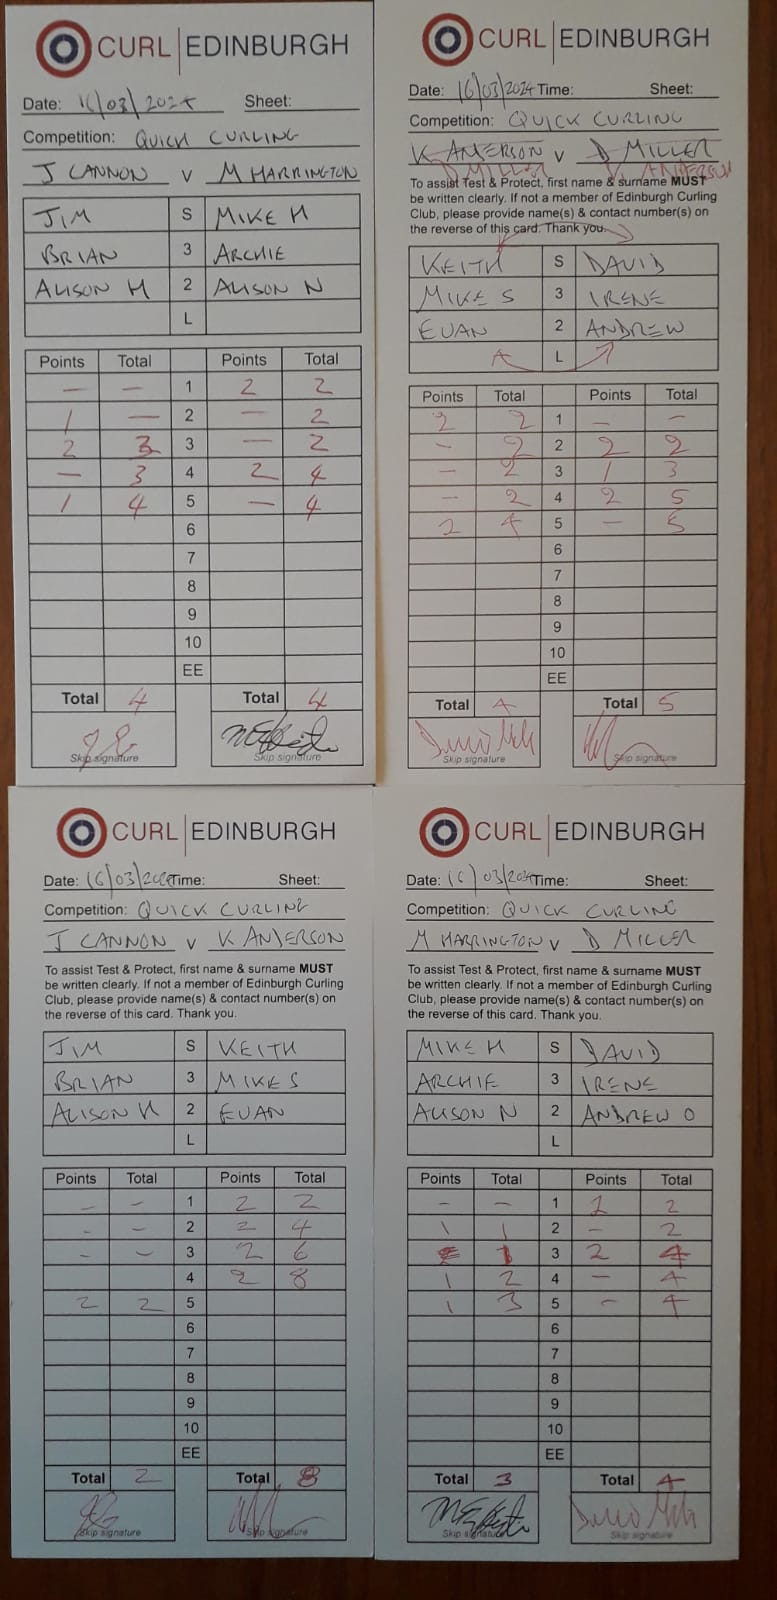 CURL EDINBURGH
Date: 16/03/2024 Sheet:
Competition: QUICK CURLING
J CANNON V M HARRINGTON
JIM S MIKE H
BRIAN 3 ARCHIE
ALISON H 2 ALISON N
L
Points Total Points Total
— — 1 2 2
1 — 2 — 2
2 3 3 — 2
— 3 4 2 4
1 4 5 — 4
6
7
8
9
10
EE
Total 4 Total 4
Skip signature Skip signature
CURL EDINBURGH
Date: 16/03/2024 Time: Sheet:
Competition: QUICK CURLING
K ANDERSON V D MILLER
D MILLER K ANDERSON
To assist Test & Protect, first name & surname MUST
be written clearly. If not a member of Edinburgh Curling
Club, please provide name(s) & contact number(s) on
the reverse of this card. Thank you.
KEITH S DAVID
MIKE S 3 IRENE
EUAN 2 ANDREW
L
Points Total Points Total
2 2 1 — —
- 2 2 2 2
- 2 3 1 3
- 2 4 2 5
2 4 5 — 5
6
7
8
9
10
EE
Total 4 Total 5
Skip signature Skip signature
CURL EDINBURGH
Date: 16/03/2024 Time: Sheet:
Competition: QUICK CURLING
J CANNON V K ANDERSON
To assist Test & Protect, first name & surname MUST
be written clearly. If not a member of Edinburgh Curling
Club, please provide name(s) & contact number(s) on
the reverse of this card. Thank you.
JIM S KEITH
BRIAN 3 MIKE S
ALISON H 2 EUAN
L
Points Total Points Total
- - 1 2 2
- - 2 2 4
- - 3 2 6
4 2 8
2 2 5
6
7
8
9
10
EE
Total 2 Total 8
Skip signature Skip signature
CURL EDINBURGH
Date: 16/03/2024 Time: Sheet:
Competition: QUICK CURLING
M HARRINGTON V D MILLER
To assist Test & Protect, first name & surname MUST
be written clearly. If not a member of Edinburgh Curling
Club, please provide name(s) & contact number(s) on
the reverse of this card. Thank you.
MIKE H S DAVID
ARCHIE 3 IRENE
ALISON N 2 ANDREW O
L
Points Total Points Total
- - 1 2 2
1 1 2 - 2
1 3 2 4
1 2 4 - 4
1 3 5 - 4
6
7
8
9
10
EE
Total 3 Total 4
Skip signature Skip signature